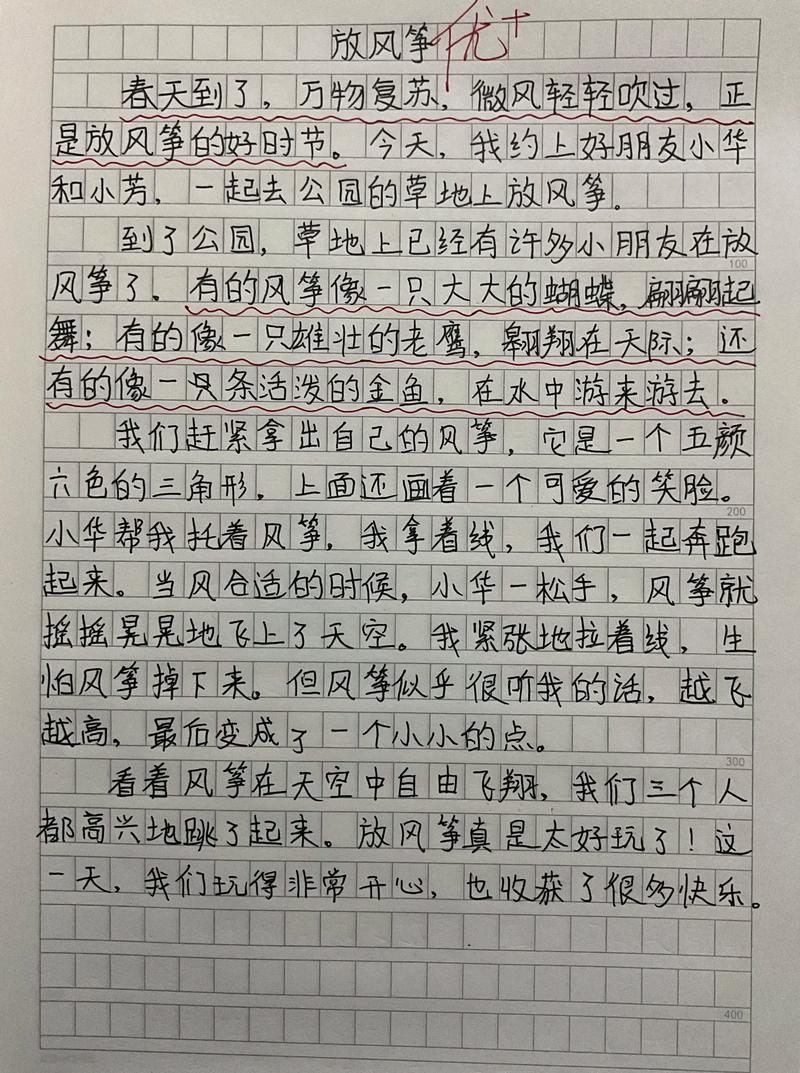 放风筝 优+
春天到了，万物复苏，微风轻轻吹过，正
是放风筝的好时节。今天，我约上好朋友小华
和小芳，一起去公园的草地上放风筝。
到了公园，草地上已经有许多小朋友在放
100
风筝了。有的风筝像一只大大的蝴蝶，翩翩起
舞；有的像一只雄壮的老鹰，翱翔在天际；还
有的像一条活泼的金鱼，在水中游来游去。
我们赶紧拿出自己的风筝，它是一个五颜
六色的三角形，上面还画着一个可爱的笑脸。
200
小华帮我托着风筝，我拿着线，我们一起奔跑
起来。当风合适的时候，小华一松手，风筝就
摇摇晃晃地飞上了天空。我紧张地拉着线，生
怕风筝掉下来。但风筝似乎很听我的话，越飞
越高，最后变成了一个小小的点。
300
看着风筝在天空中自由飞翔，我们三个人
都高兴地跳了起来。放风筝真是太好玩了！这
一天，我们玩得非常开心，也收获了很多快乐。
400